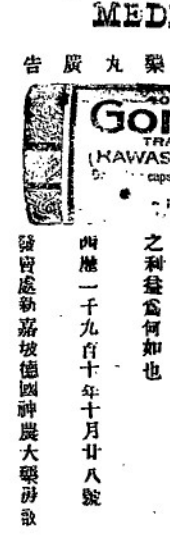 MED
藥丸廣告
GO
TRA
(KAWAS
caps
之利益爲何如也
西歷一千九百十年十月廿八號
發賣處新嘉坡德國神農大藥房啟